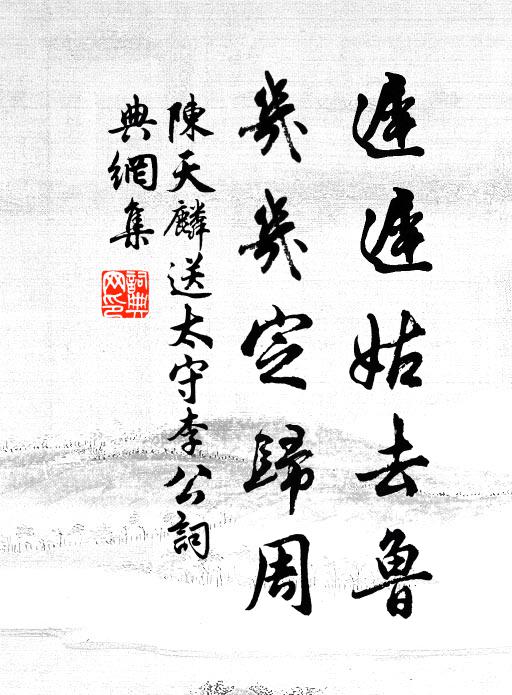 遲遲姑去魯
幾幾定歸周
陳天麟送太守李公詞
典網集
詞典
网印